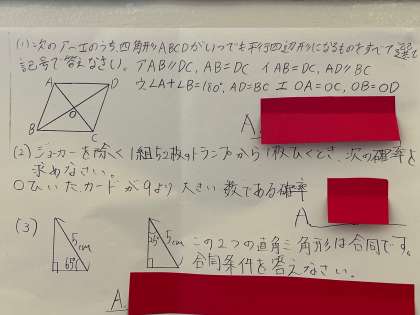 (1)次のア~エのうち四角形ABCDがいつでも平行四辺形になるものをすべて選んで
記号で答えなさい。ア AB//DC, AB=DC イ AB=DC, AD//BC
ウ ∠A+∠B=180°, AD=BC エ OA=OC, OB=OD
A D
O
B C
A.
(2) ジョーカーを除く1組52枚のトランプから1枚ひくとき、次の確率を
求めなさい。
○ひいたカードが9より大きい数である確率
A
(3)
5cm 65°
25° 5cm
この2つの直角三角形は合同です。
合同条件を答えなさい。
A.